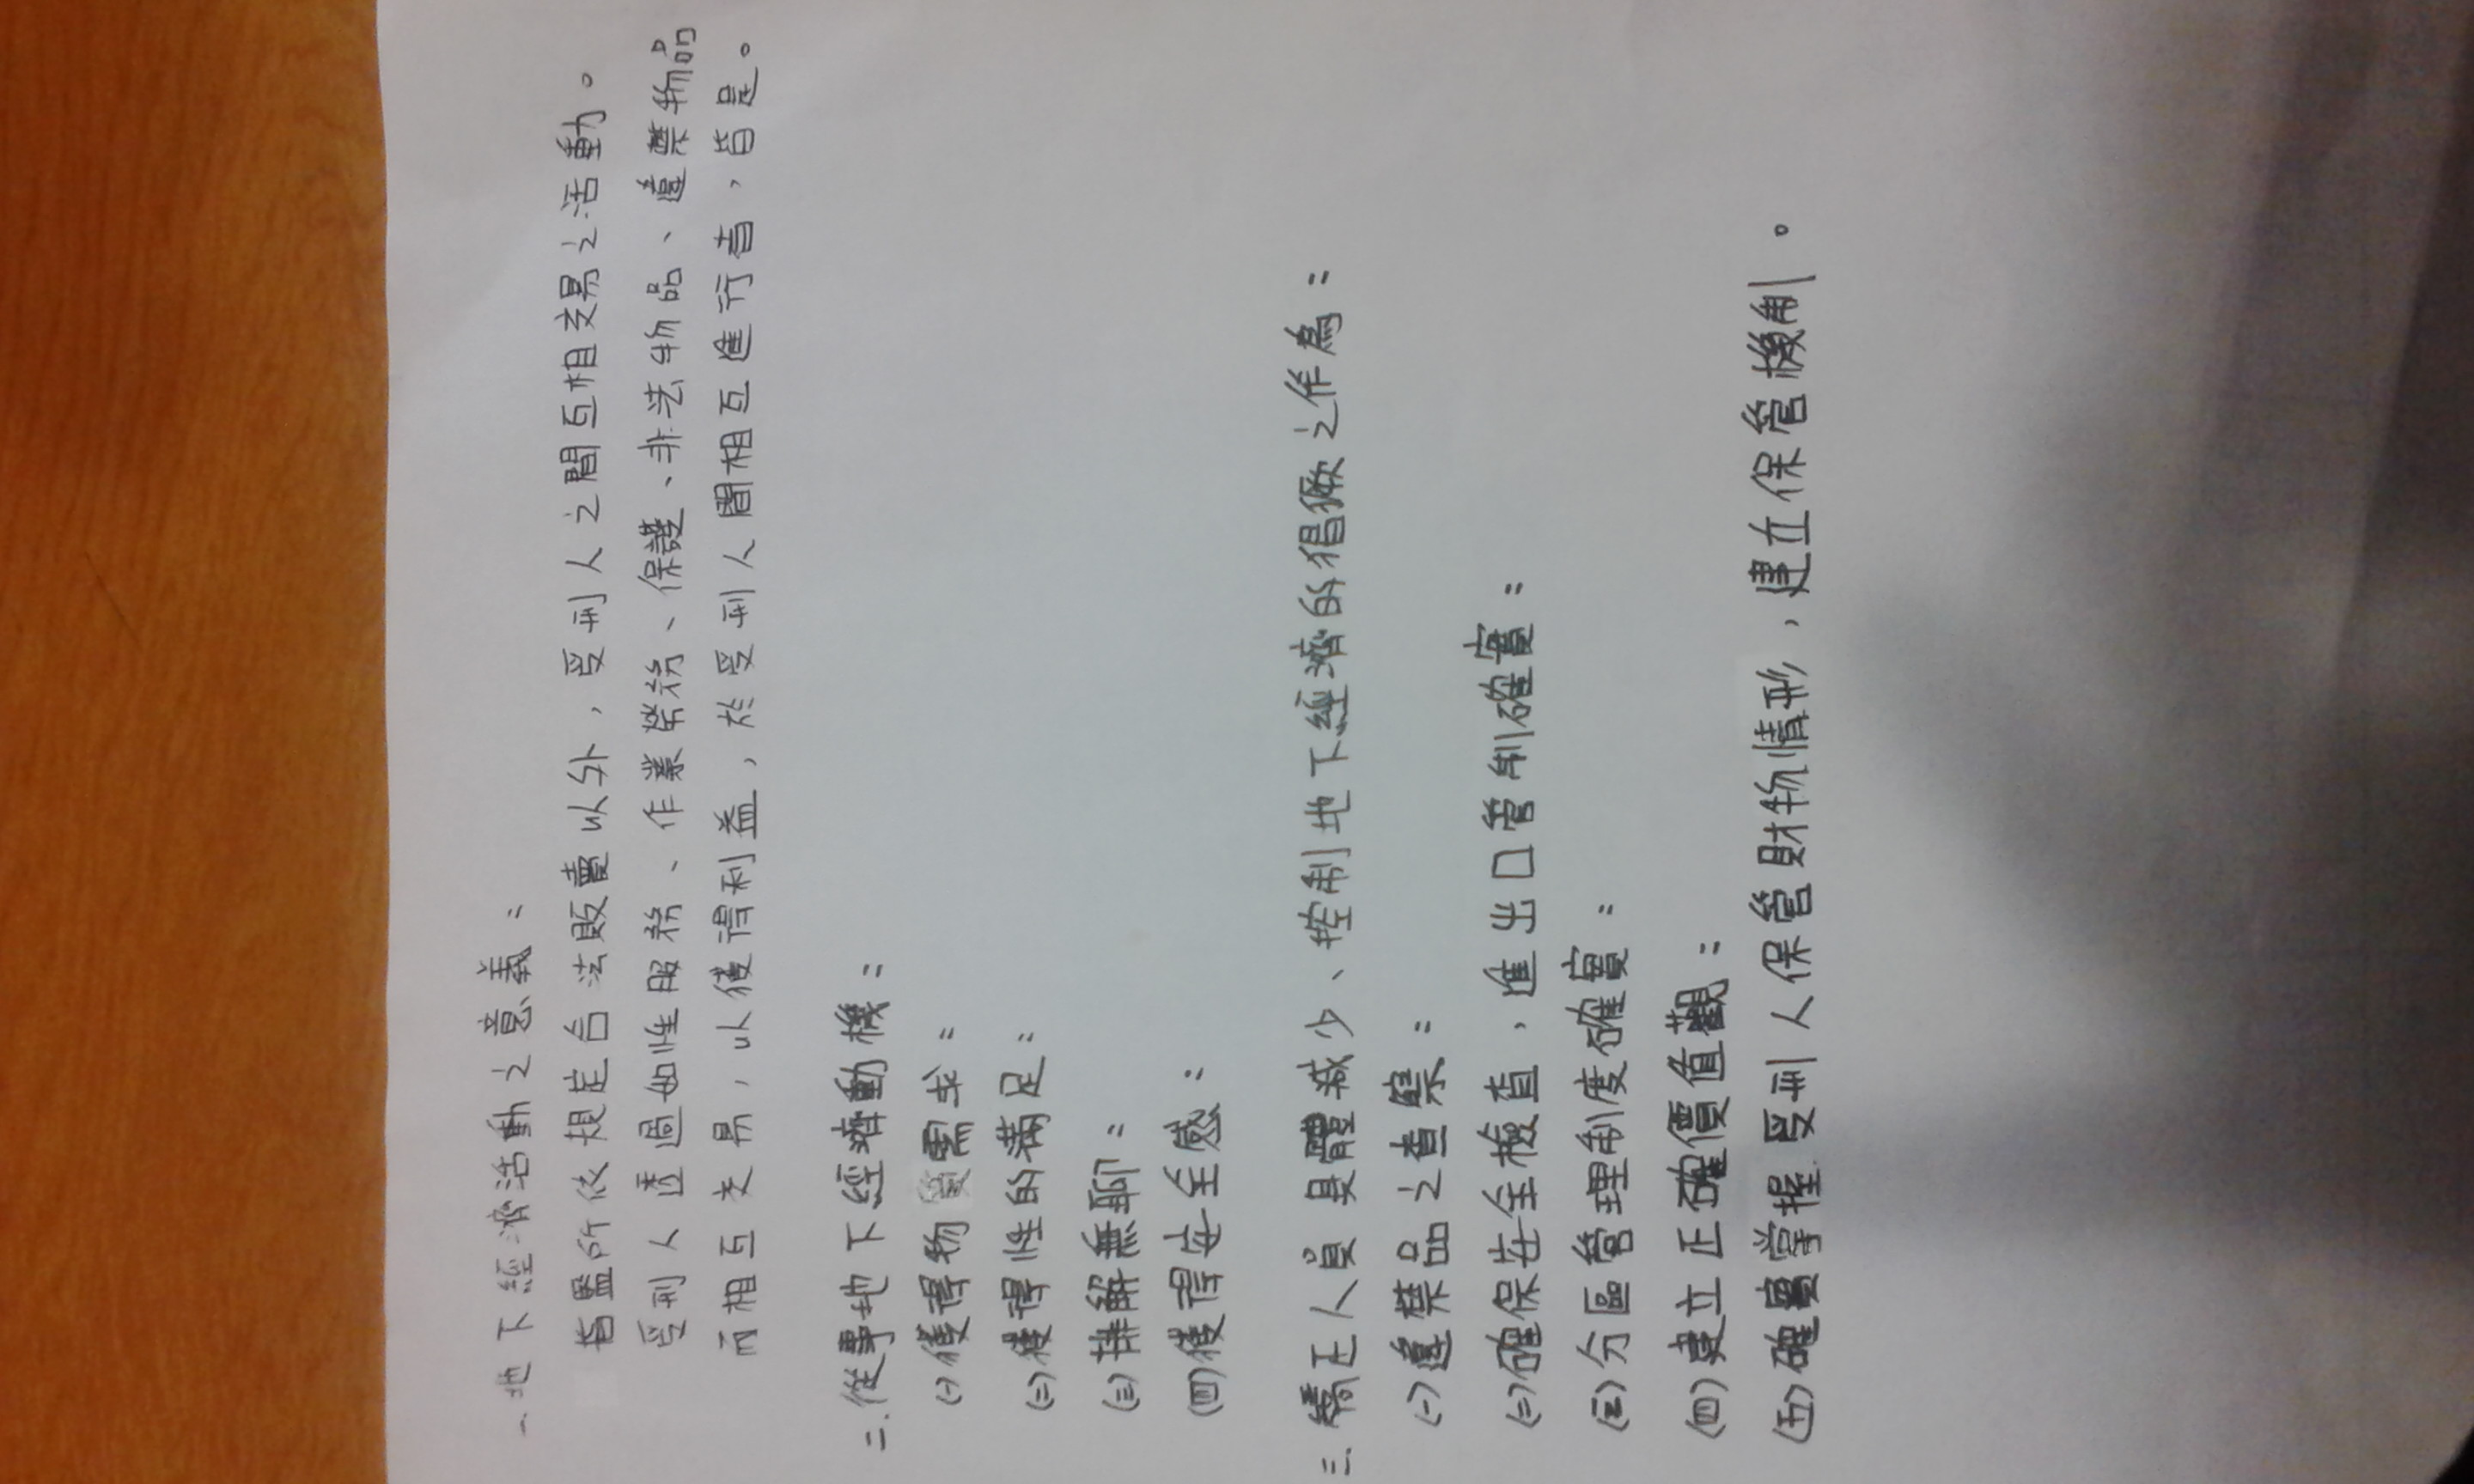 一.地下經濟活動之意義：
指監所依規定合法販賣以外，受刑人之間互相交易之活動。
受刑人透過如性服務、作業勞務、保護、非法物品、違禁物品
而相互交易，以獲得利益，於受刑人間相互進行者，皆是。
二.從事地下經濟動機：
(一)獲得物質需求：
(二)獲得性的滿足：
(三)排解無聊：
(四)獲得安全感：
三.矯正人員具體減少、控制地下經濟的猖獗之作為：
(一)違禁品之查緝：
(二)確保安全檢查，進出口管制確實：
(三)分區管理制度確實：
(四)建立正確價值觀：
(五)確實掌握受刑人保管財物情形，建立保管機制。